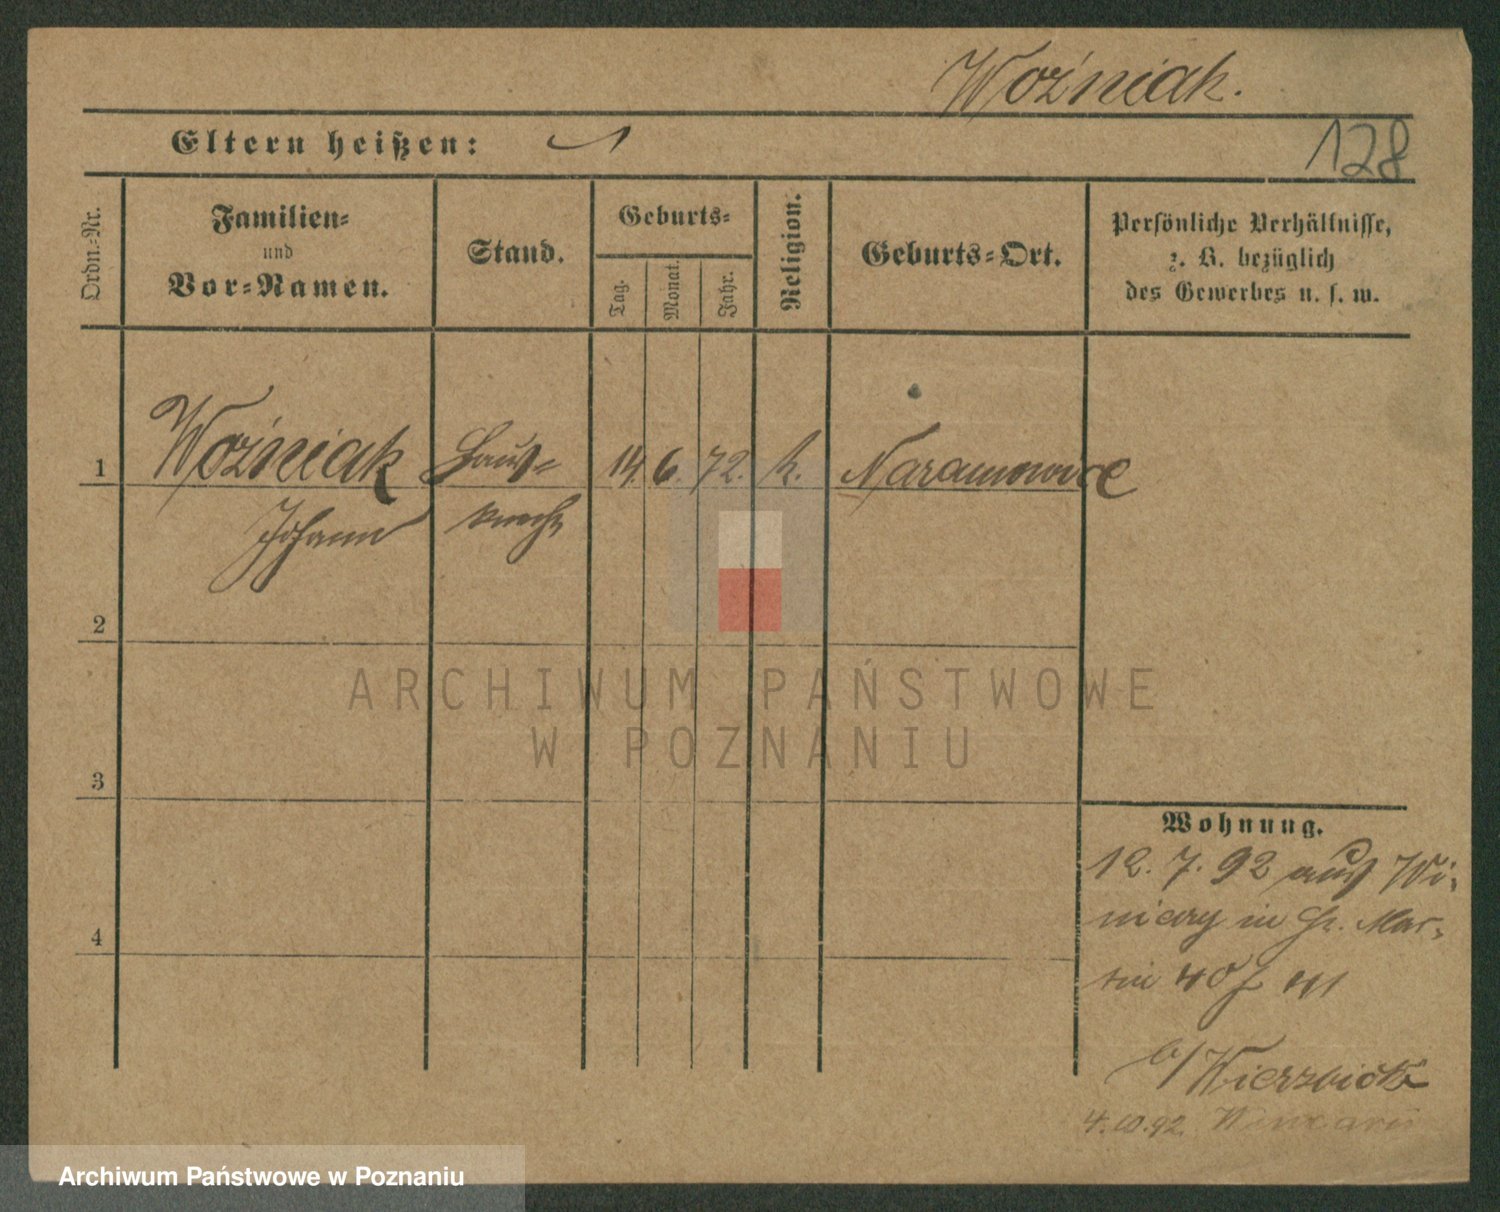 Woźniak.
Eltern heißen:
128
Ordn.-Nr.
Familien-
und
Vor-Namen.
Stand.
Geburts-
Tag.
Monat.
Jahr.
Religion.
Geburts-Ort.
Persönliche Verhältnisse,
z. B. bezüglich
des Gewerbes u. s. w.
1 Woźniak Haus- 14. 6. 72. k. Naramowice
Johann knecht
2
ARCHIWUM PAŃSTWOWE
W POZNANIU
3
4
Wohnung.
12. 7. 92 aus Wi-
niary in St. Mar-
tin 40 41
b/ Wierzbicki
4.10.92
Archiwum Państwowe w Poznaniu